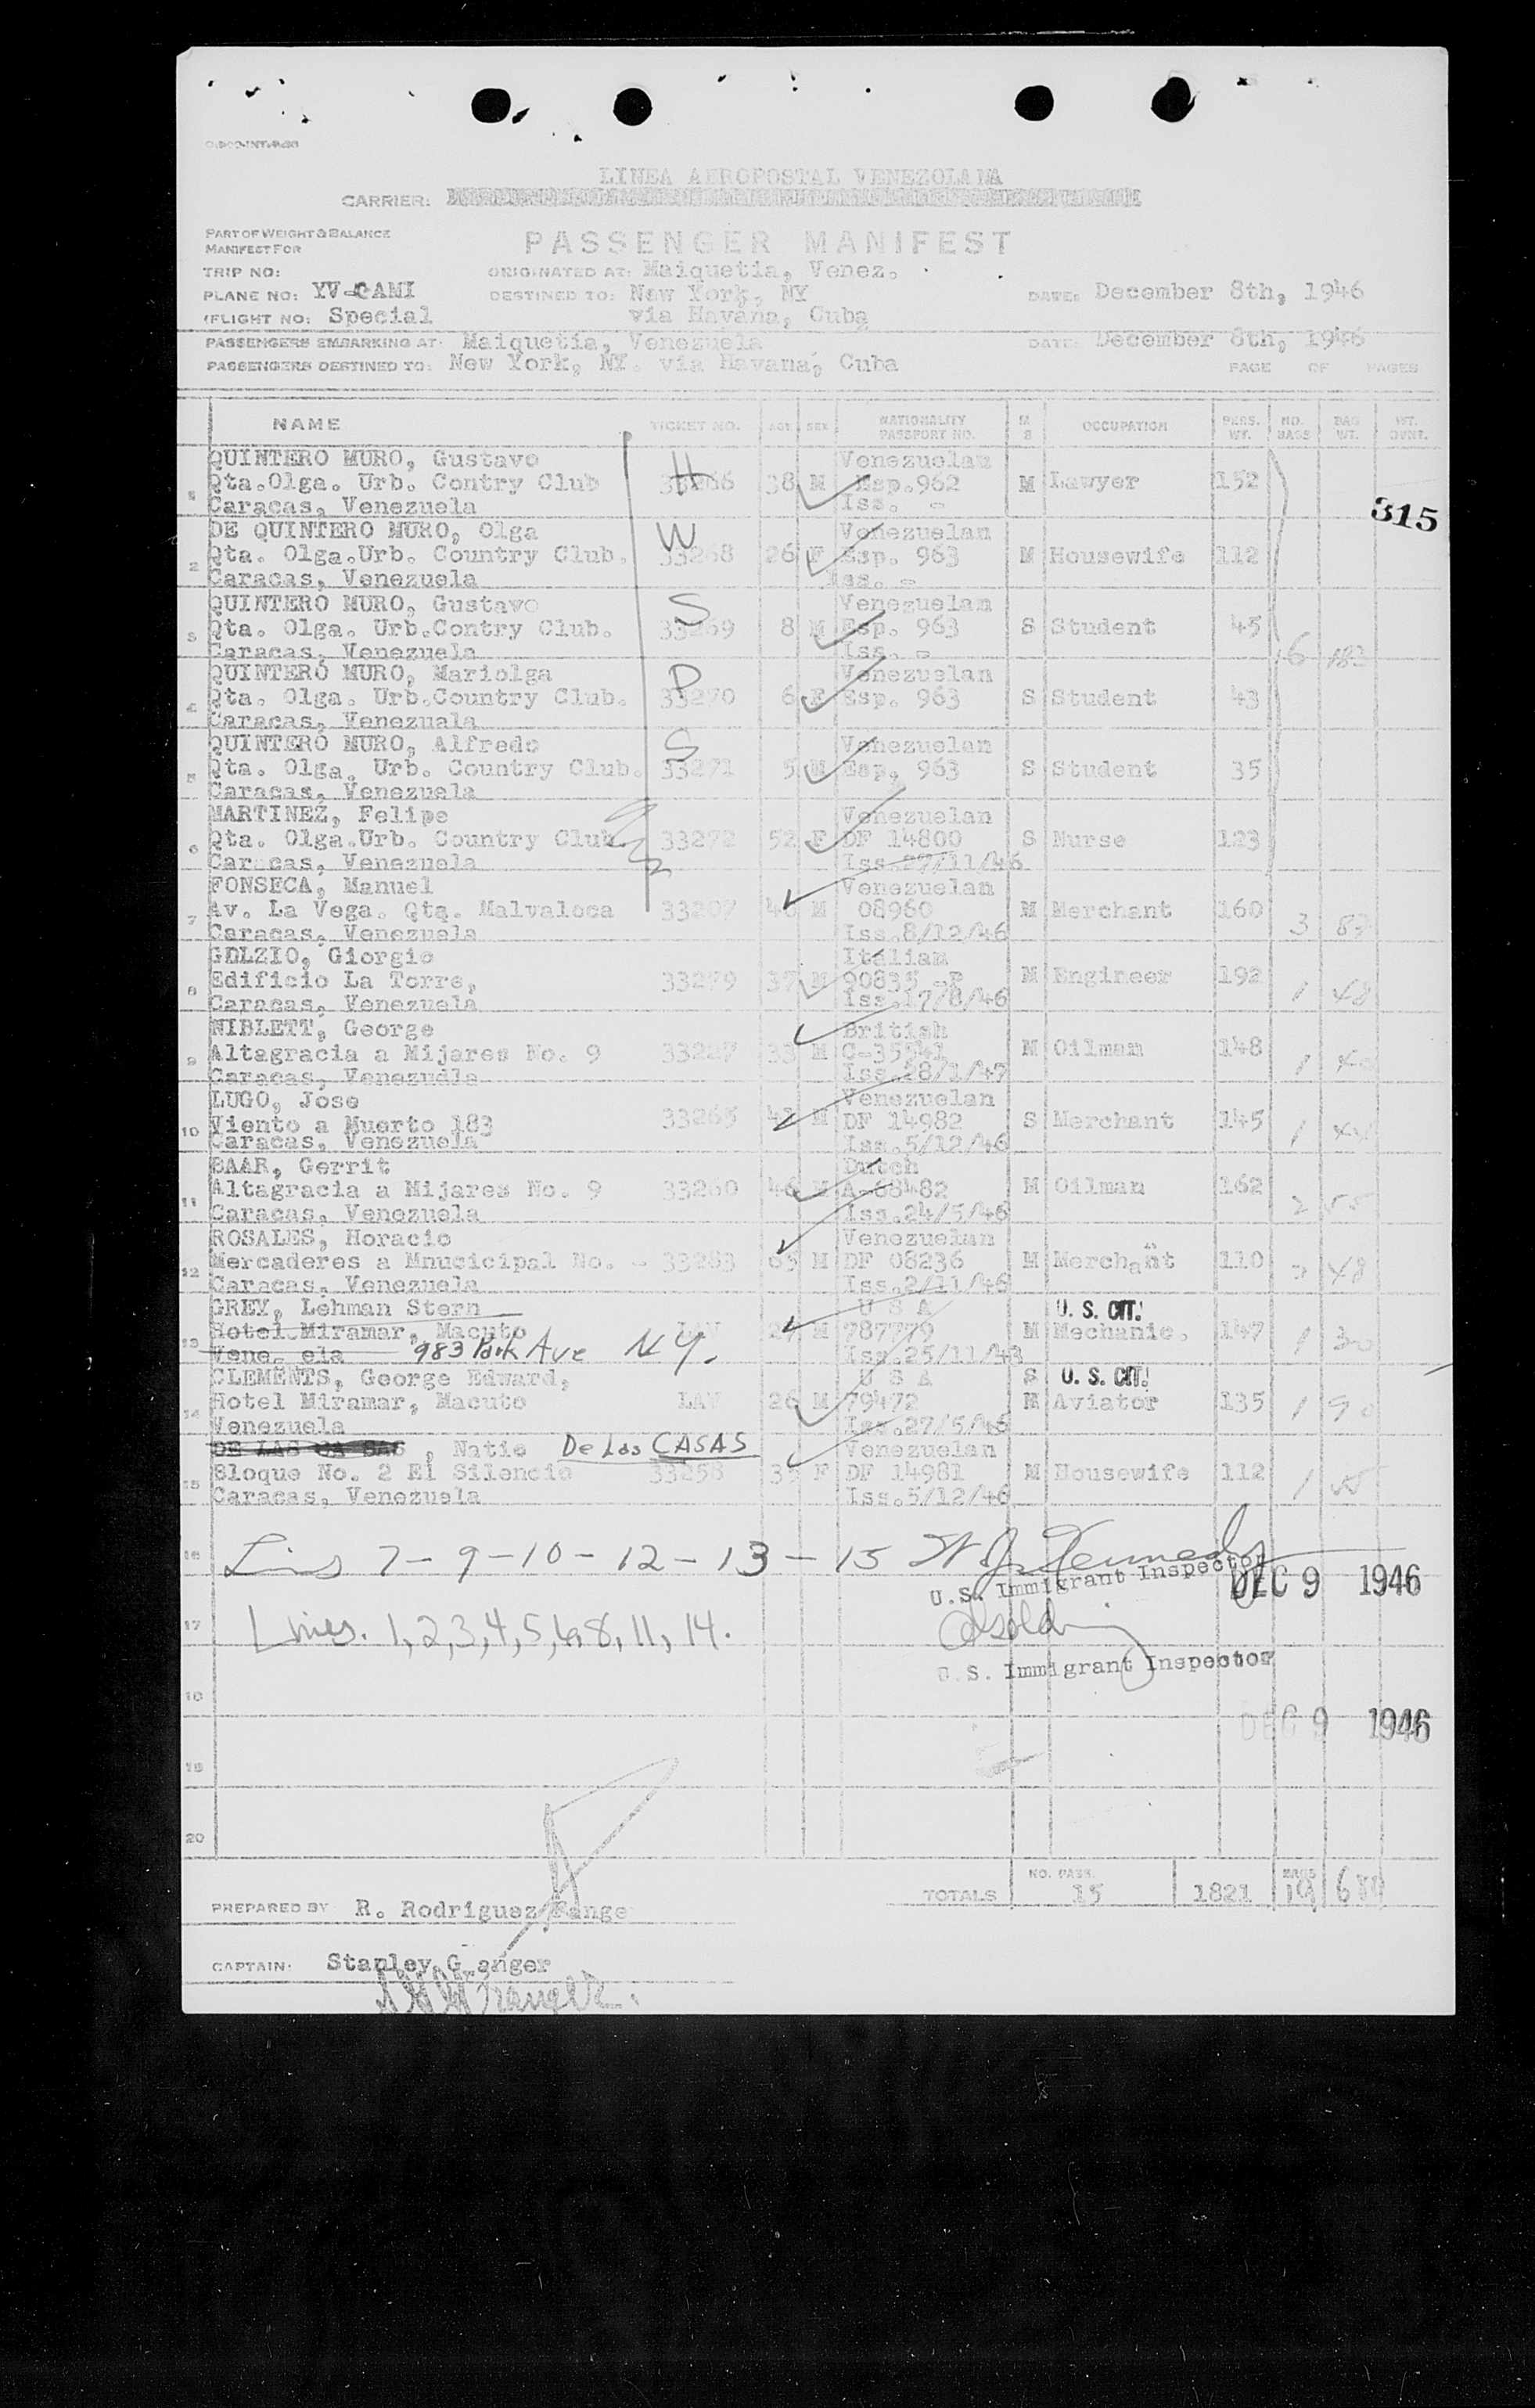 LINEA AEROPOSTAL VENEZOLANA
CARRIER:
PART OF WEIGHT & BALANCE
MANIFEST FOR
PASSENGER MANIFEST
TRIP NO:
ORIGINATED AT: Maiquetia, Venez.
PLANE NO: YV-CAMI
DESTINED TO: New York, NY
DATE: December 8th, 1946
FLIGHT NO: Special
via Havana, Cuba
PASSENGERS EMBARKING AT: Maiquetia, Venezuela DATE: December 8th, 1946
PASSENGERS DESTINED TO: New York, NY. via Havana, Cuba PAGE OF PAGES
NAME TICKET NO. AGE SEX NATIONALITY PASSPORT NO. M S OCCUPATION PERS. WT. NO. BAGS BAG WT.
QUINTERO MURO, Gustavo H Venezuelan
1 Qta.Olga. Urb. Contry Club 33266 38 M Esp.962 M Lawyer 152
Caracas, Venezuela Iss. -
315
DE QUINTERO MURO, Olga W Venezuelan
2 Qta. Olga.Urb. Country Club. 33268 26 F Esp. 963 M Housewife 112
Caracas, Venezuela Iss. -
QUINTERO MURO, Gustavo S Venezuelan
3 Qta. Olga. Urb.Contry Club. 33269 8 M Esp. 963 S Student 45
Caracas, Venezuela Iss. - 6 183
QUINTERO MURO, Mariolga D Venezuelan
4 Qta. Olga. Urb.Country Club. 33270 6 F Esp. 963 S Student 43
Caracas, Venezuala
QUINTERO MURO, Alfredo S Venezuelan
5 Qta. Olga. Urb. Country Club. 33271 5 M Esp, 963 S Student 35
Caracas, Venezuela
MARTINEZ, Felipe Venezuelan
6 Qta. Olga.Urb. Country Club 33272 52 F DF 14800 S Nurse 123
Caracas, Venezuela Iss.27/11/46
FONSECA, Manuel Venezuelan
7 Av. La Vega. Qta. Malvaloca 33207 46 M 08960 M Merchant 160
Caracas, Venezuela Iss.8/12/46 3
GELZIO, Giorgio Italian
8 Edificio La Torre, 33279 37 M 90835 -P M Engineer 192
Caracas, Venezuela Iss.17/8/46 1 48
NIBLETT, George British
9 Altagracia a Mijares No. 9 33247 33 M C-35541 M Oilman 148
Caracas, Venezudla Iss.28/1/47 1
LUGO, Jose Venezuelan
10 Viento a Muerto 183 33265 M DF 14982 S Merchant 145
Caracas, Venezuela Iss.5/12/46 1
BAAR, Gerrit Dutch
11 Altagracia a Mijares No. 9 33260 46 M A-68482 M Oilman 162
Caracas, Venezuela Iss.24/5/46 2 55
ROSALES, Horacio Venezuelan
12 Mercaderes a Mnucicipal No. - 33283 65 M DF 08236 M Merchant 110
Caracas, Venezuela Iss.2/11/46 48
GREY, Lehman Stern U S A U. S. CIT.
13 Hotel Miramar, Macuto LAV 27 M 787779 M Mechanic. 147
Vene ela 983 Park Ave N Y. Iss.25/11/43 1 30
CLEMENTS, George Edward, U S A S U. S. CIT.
14 Hotel Miramar, Macuto LAV 26 M 79472 M Aviator 135
Venezuela Iss.27/5/46 1 90
DE LAS CA SAS , Natie De Las CASAS Venezuelan
15 Bloque No. 2 El Silencio 33258 35 F DF 14981 M Housewife 112
Caracas, Venezuela Iss.5/12/46 1 55
16 Lins 7-9-10-12-13-15 W J Kennedy
U.S. Immigrant Inspector DEC 9 1946
17 Lines. 1,2,3,4,5,6,8,11,14.
U.S. Immigrant Inspector
18
DEC 9 1946
19
20
TOTALS NO. PASS. 15 1821 BAGS 19
PREPARED BY R. Rodriguez Range
CAPTAIN: Stanley G anger